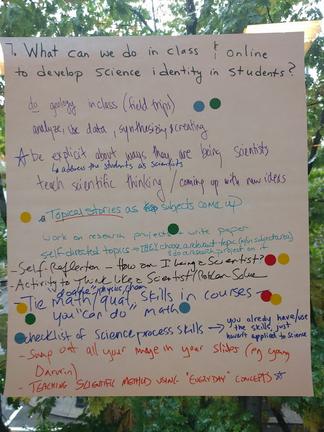 7. What can we do in class & online
to develop science identity in students?
do geology in class (field trips)
analyze, use data, synthesizing & creating
☆ be explicit about ways they are being scientists
↳ address the students as scientists
teach scientific thinking / coming up with new ideas
Topical stories as subjects come up
work on research project → write paper
self-directed topics → they choose a relevant topic
do a research project on it
- Self-Reflection - How am I being a scientist?
- Activity to Think like a Scientist/Problem Solve
Tie math/quat skills in courses -
you "can do" math
checklist of science process skills → you already have/use
the skills, just
haven't applied to science
- Swap out all your image in your slides (eg young
Darwin)
- TEACHING SCIENTIFIC METHOD USING "EVERYDAY" CONCEPTS ☆